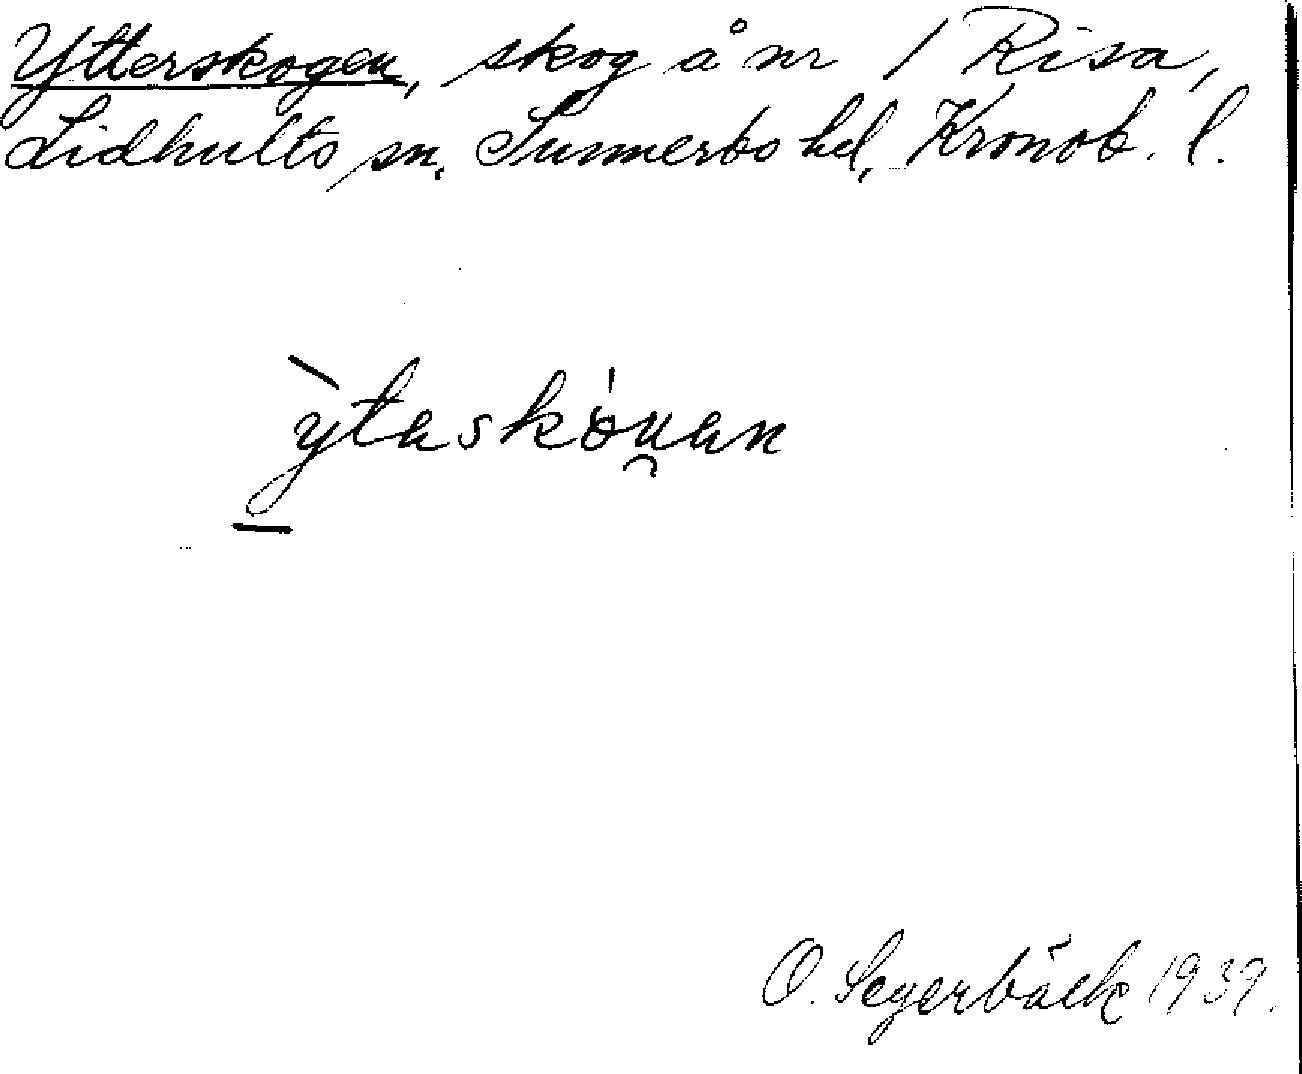 Ytterskogen, skog å nr 1 Risa,
Lidhults sn. Sunnerbo hd, Kronob. l.
ỳtaskóu̯an
O. Segerbäck 1939.